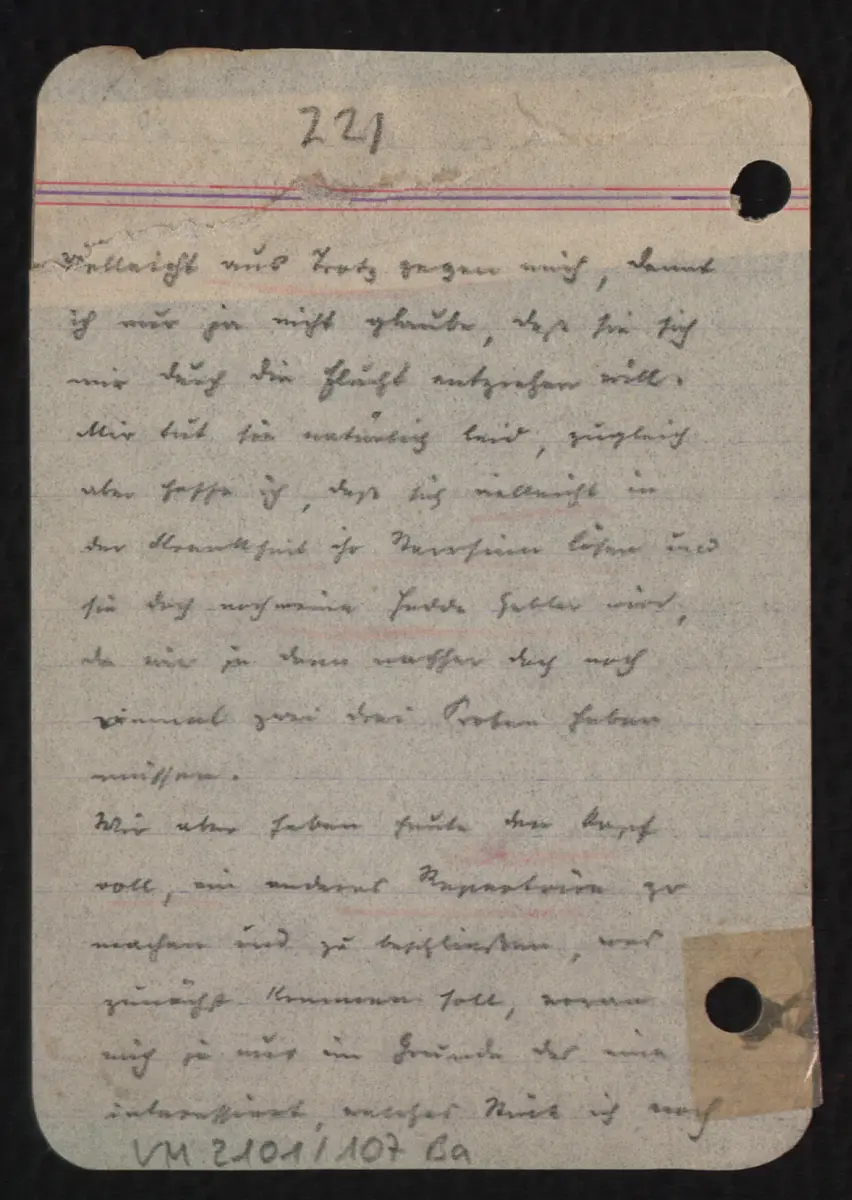 221
vielleicht aus Trotz gegen mich, damit
ich nur ja nicht glaube, dass sie sich
mir durch die Flucht entziehen will.
Mir tut sie natürlich leid, zugleich
aber hoffe ich, dass sich vielleicht in
der Krankheit ihr Starrsinn lösen und
sie doch noch meine Hedda Gabler wird,
da wir ja dann nachher doch noch
einmal zwei drei Proben haben
müssen.
Wir aber haben heute den Kopf
voll, ein anderes Repertoire zu
machen und zu beschließen, was
zunächst kommen soll, woran
mich ja nur im Grunde das eine
interessiert, welches Stück ich noch
VM 2101/107 Ba